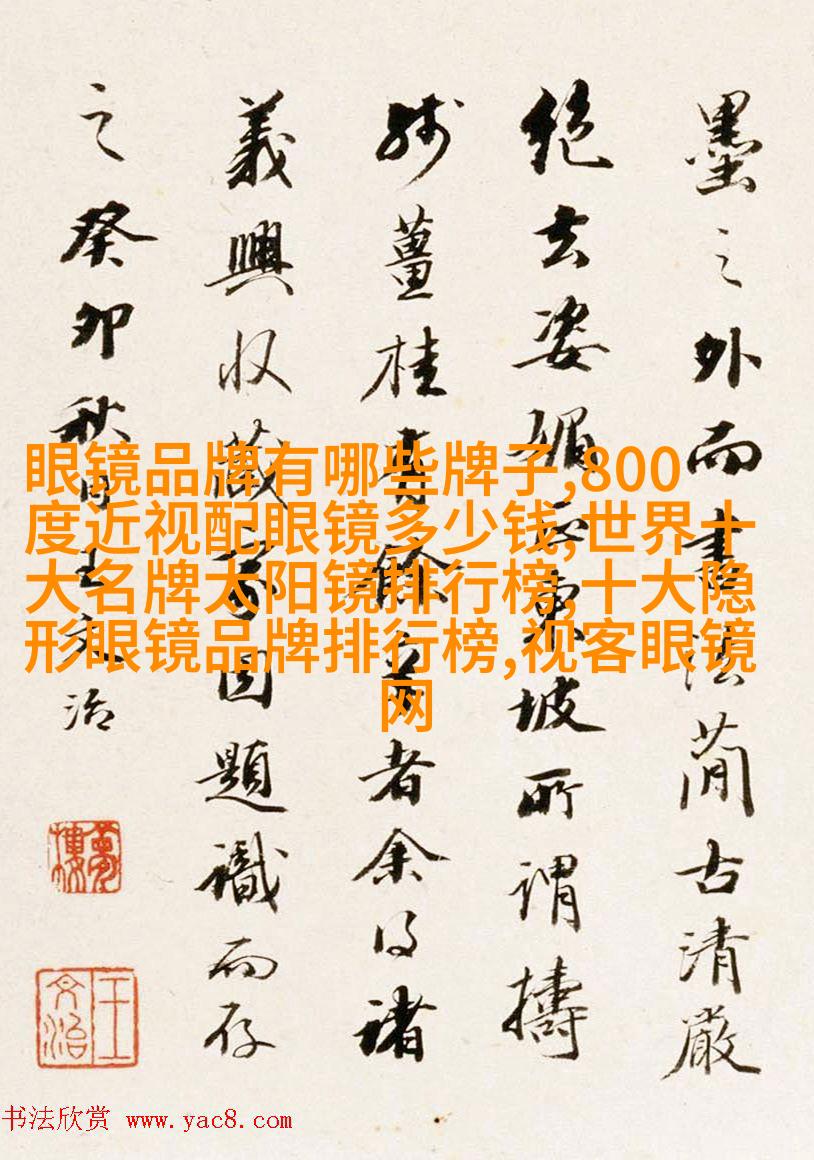 墨之外而書法簡古清嚴
絕去姿媚正東坡所謂擣
殘薑桂有餘者余得諸
義興收藏家因題識而存
之癸卯秋日王文治
夢樓
王文治
眼镜品牌有哪些牌子,800
度近视配眼镜多少钱,世界十
大名牌太阳镜排行榜,十大隐
形眼镜品牌排行榜,视客眼镜
网
书法欣赏 www.yac8.com